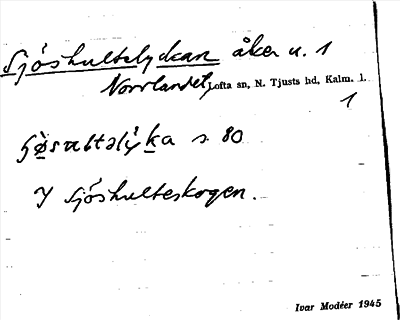 Sjöshultslyckan åker u. 1
Norrlandet, Lofta sn, N. Tjusts hd, Kalm. l.
1
s. 80
I Sjöshulteskogen.
Ivar Modéer 1945